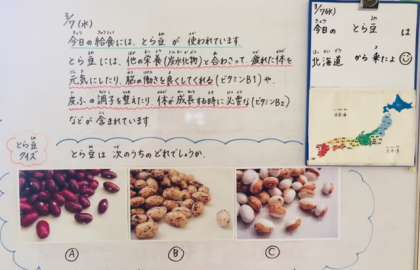 3/7(水)
今日の給食には、とら豆が 使われています
とら豆には、他の栄養(炭水化物)と合わさって、疲れた体を
元気にしたり、脳の働きを良くしてくれる(ビタミンB1)や、
皮ふの調子を整えたり 体が成長する時に必要な(ビタミンB2)
などが 含まれています
とら豆
クイズ
とら豆は 次のうちのどれでしょうか。
A
B
C
3/7(水)
今日の とら豆 は
北海道 から 来たよ